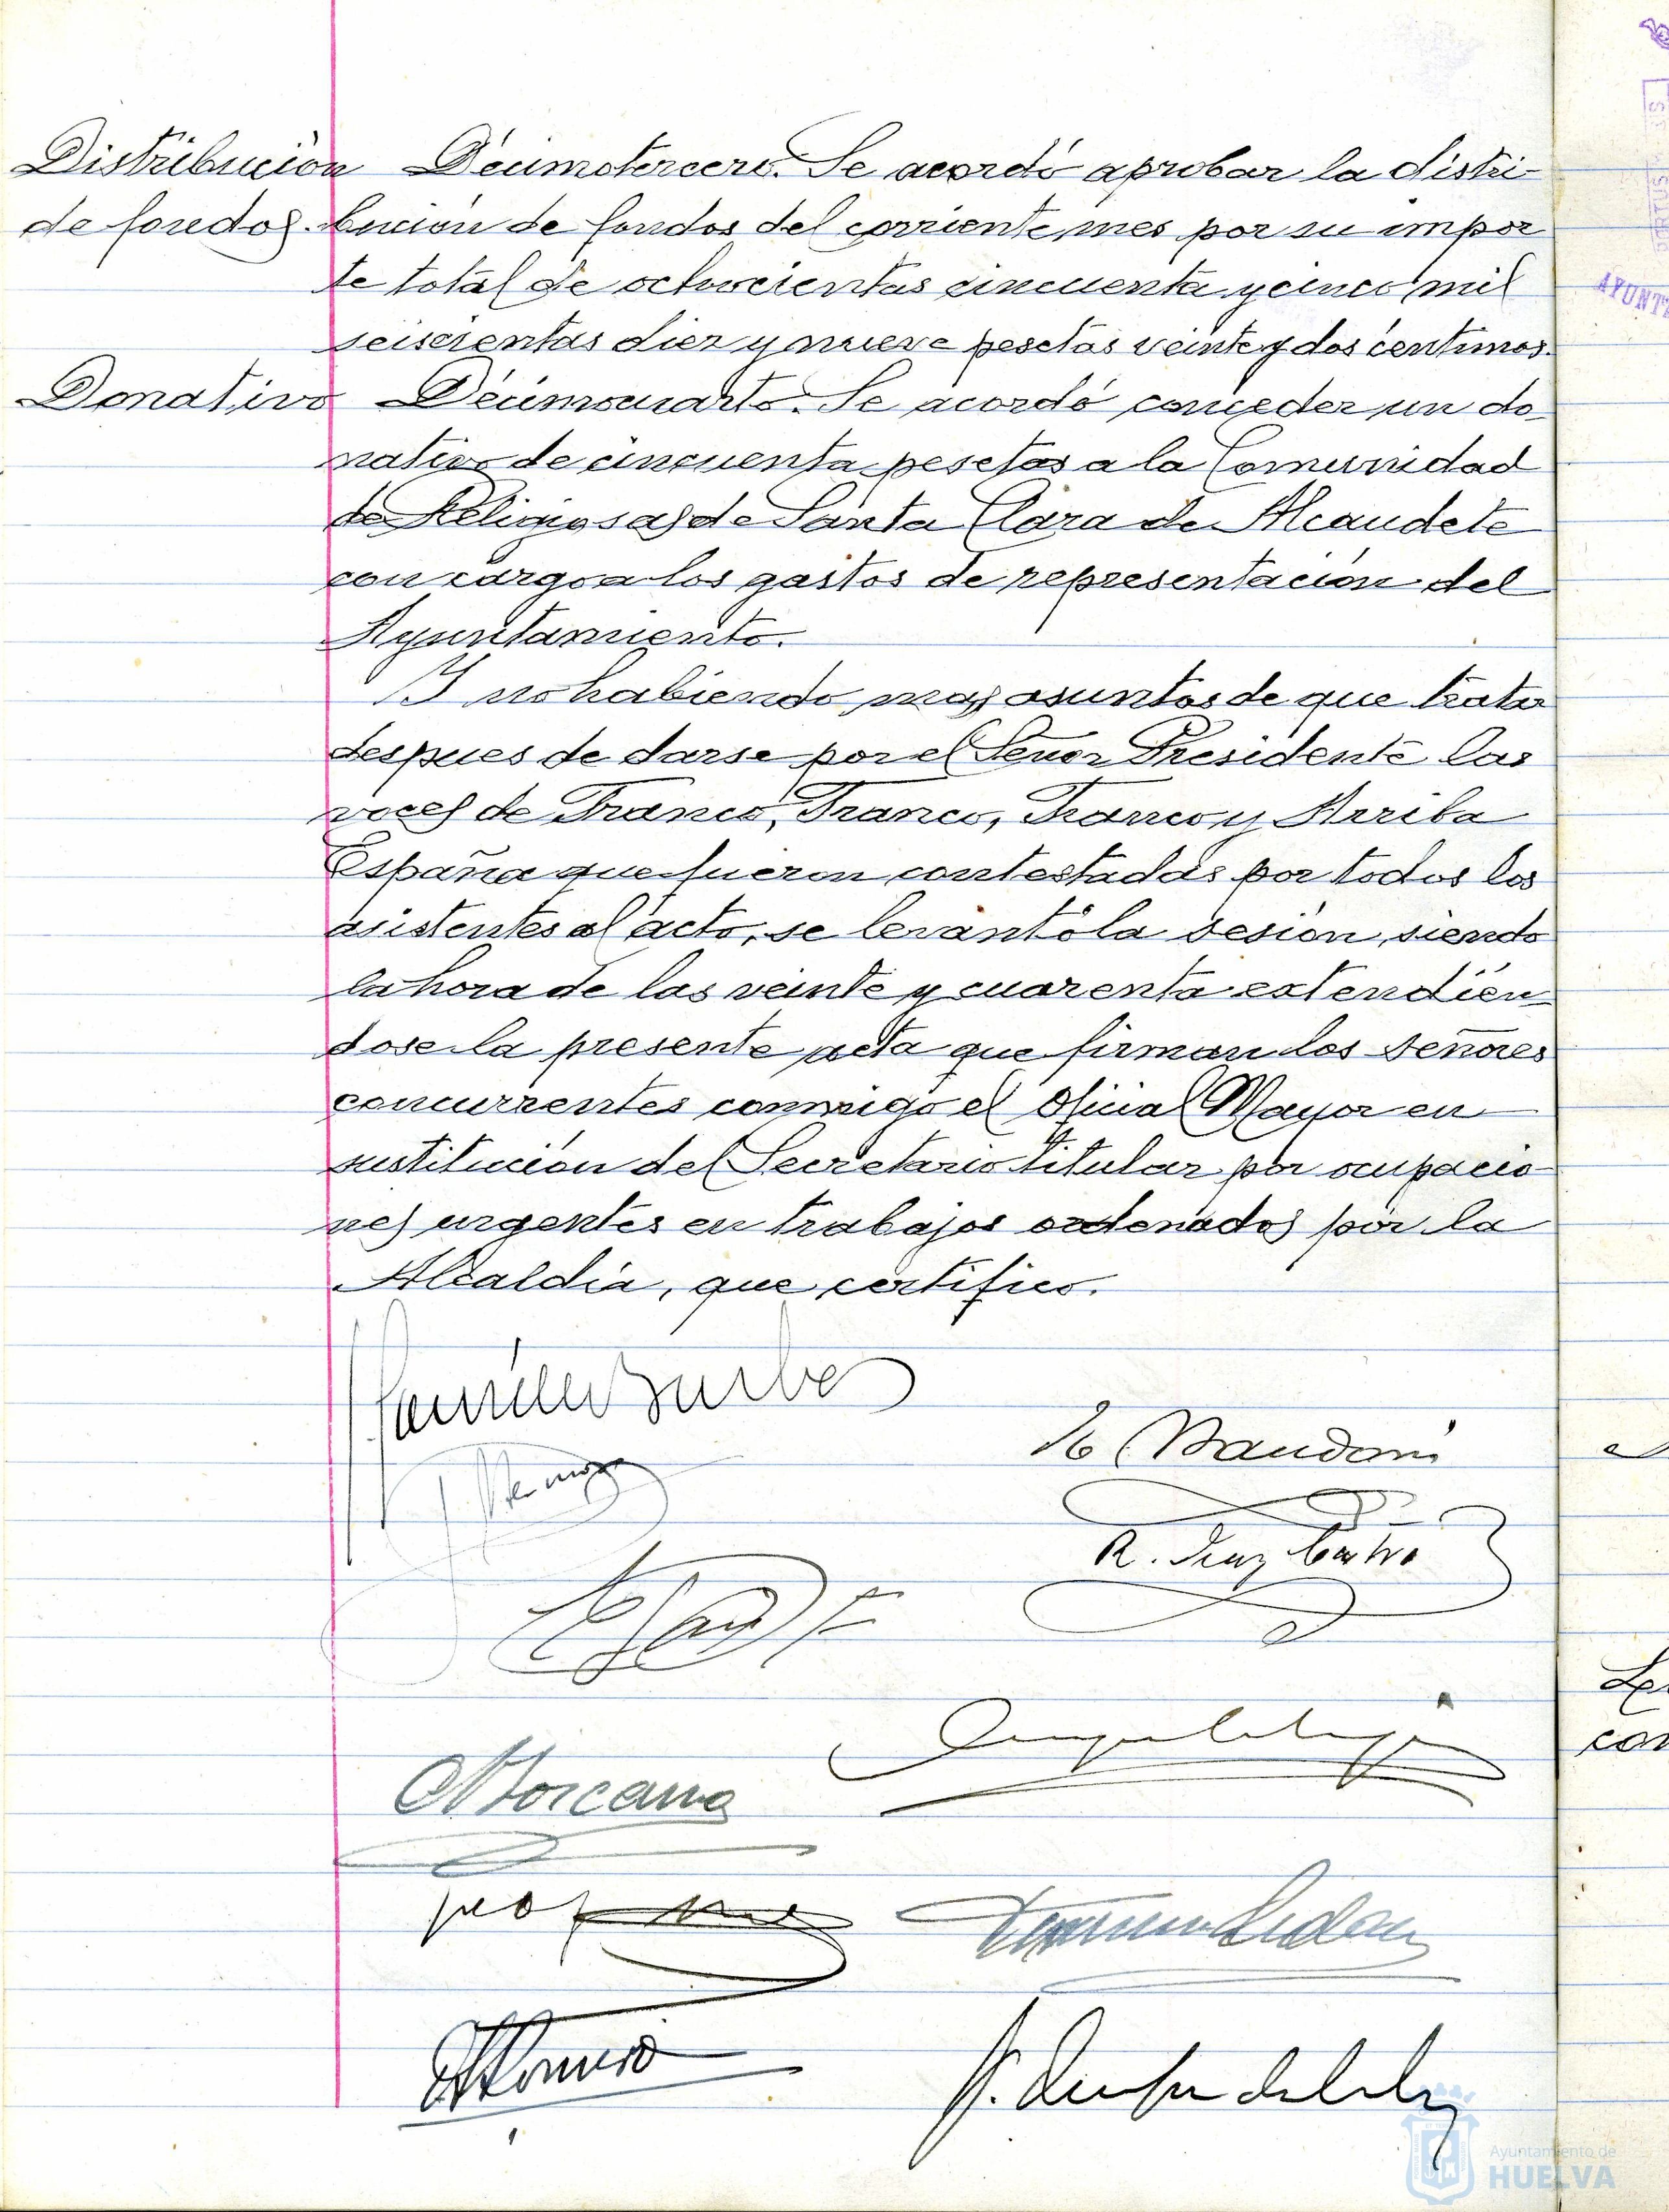 Distribución
de fondos.
Décimotercero. Se acordó aprobar la distri-
bución de fondos del corriente mes por su impor
te total de ochocientas cincuenta y cinco mil
seiscientas diez y nueve pesetas veinte y dos centimos.
Donativo
Décimocuarto. Se acordó conceder un do
nativo de cincuenta pesetas a la Comunidad
de Religiosas de Santa Clara de Alcaudete
con cargo a los gastos de representación del
Ayuntamiento.
Y no habiendo mas asuntos de que tratar
despues de darse por el Señor Presidente las
voces de Franco, Franco, Franco y Arriba
España que fueron contestadas por todos los
asistentes al acto, se levantó la sesión, siendo
la hora de las veinte y cuarenta extendién
dose la presente acta que firman los señores
concurrentes conmigo el Oficial Mayor en
sustitución del Secretario titular por ocupacio
nes urgentes en trabajos ordenados por la
Alcaldía, que certifico.
R. Diaz Castro
Ayuntamiento de
HUELVA